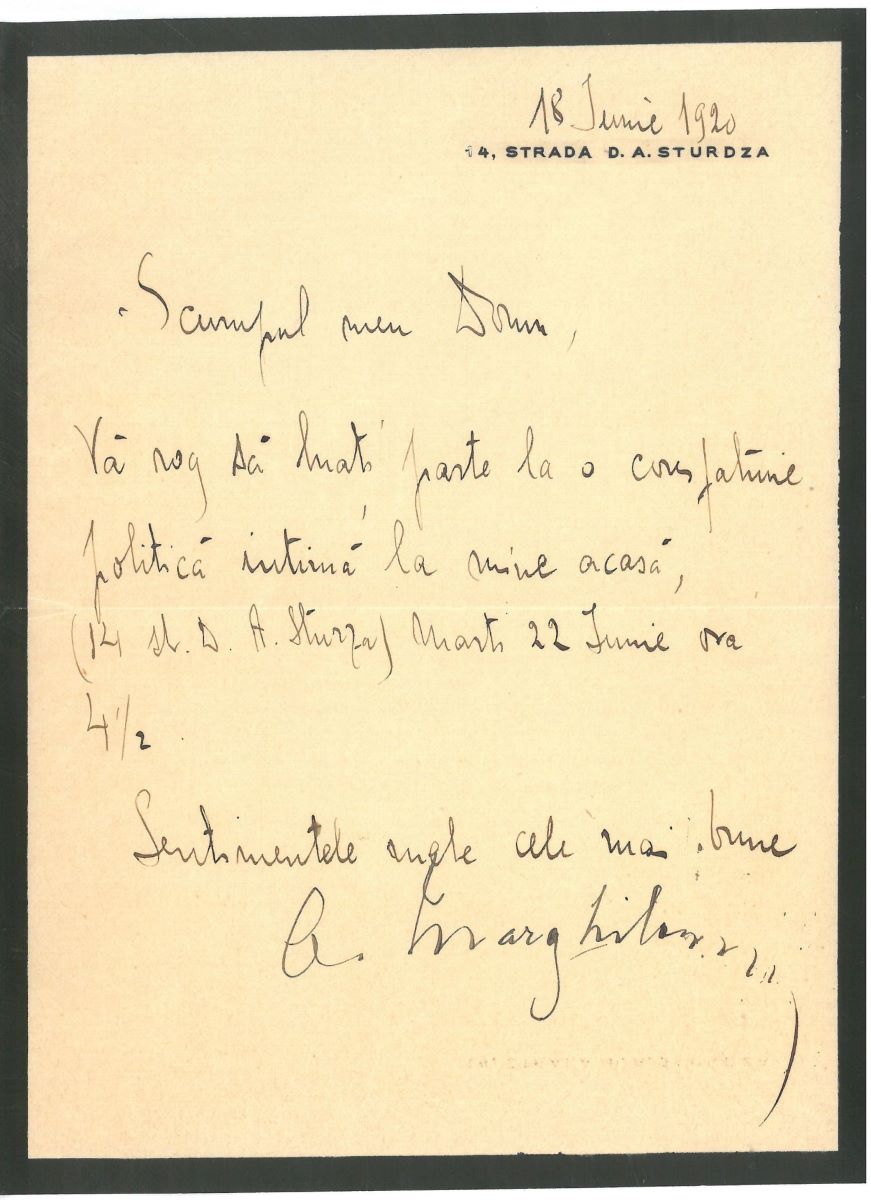 18 Iunie 1920
14, STRADA D. A. STURDZA
Scumpul meu Domn,
Vă rog să luați parte la o consfătuire
politică intimă la mine acasă,
(14 st. D. A. Sturza) Marți 22 Iunie ora
4 1/2.
Sentimentele mele cele mai bune
A. Marghiloman